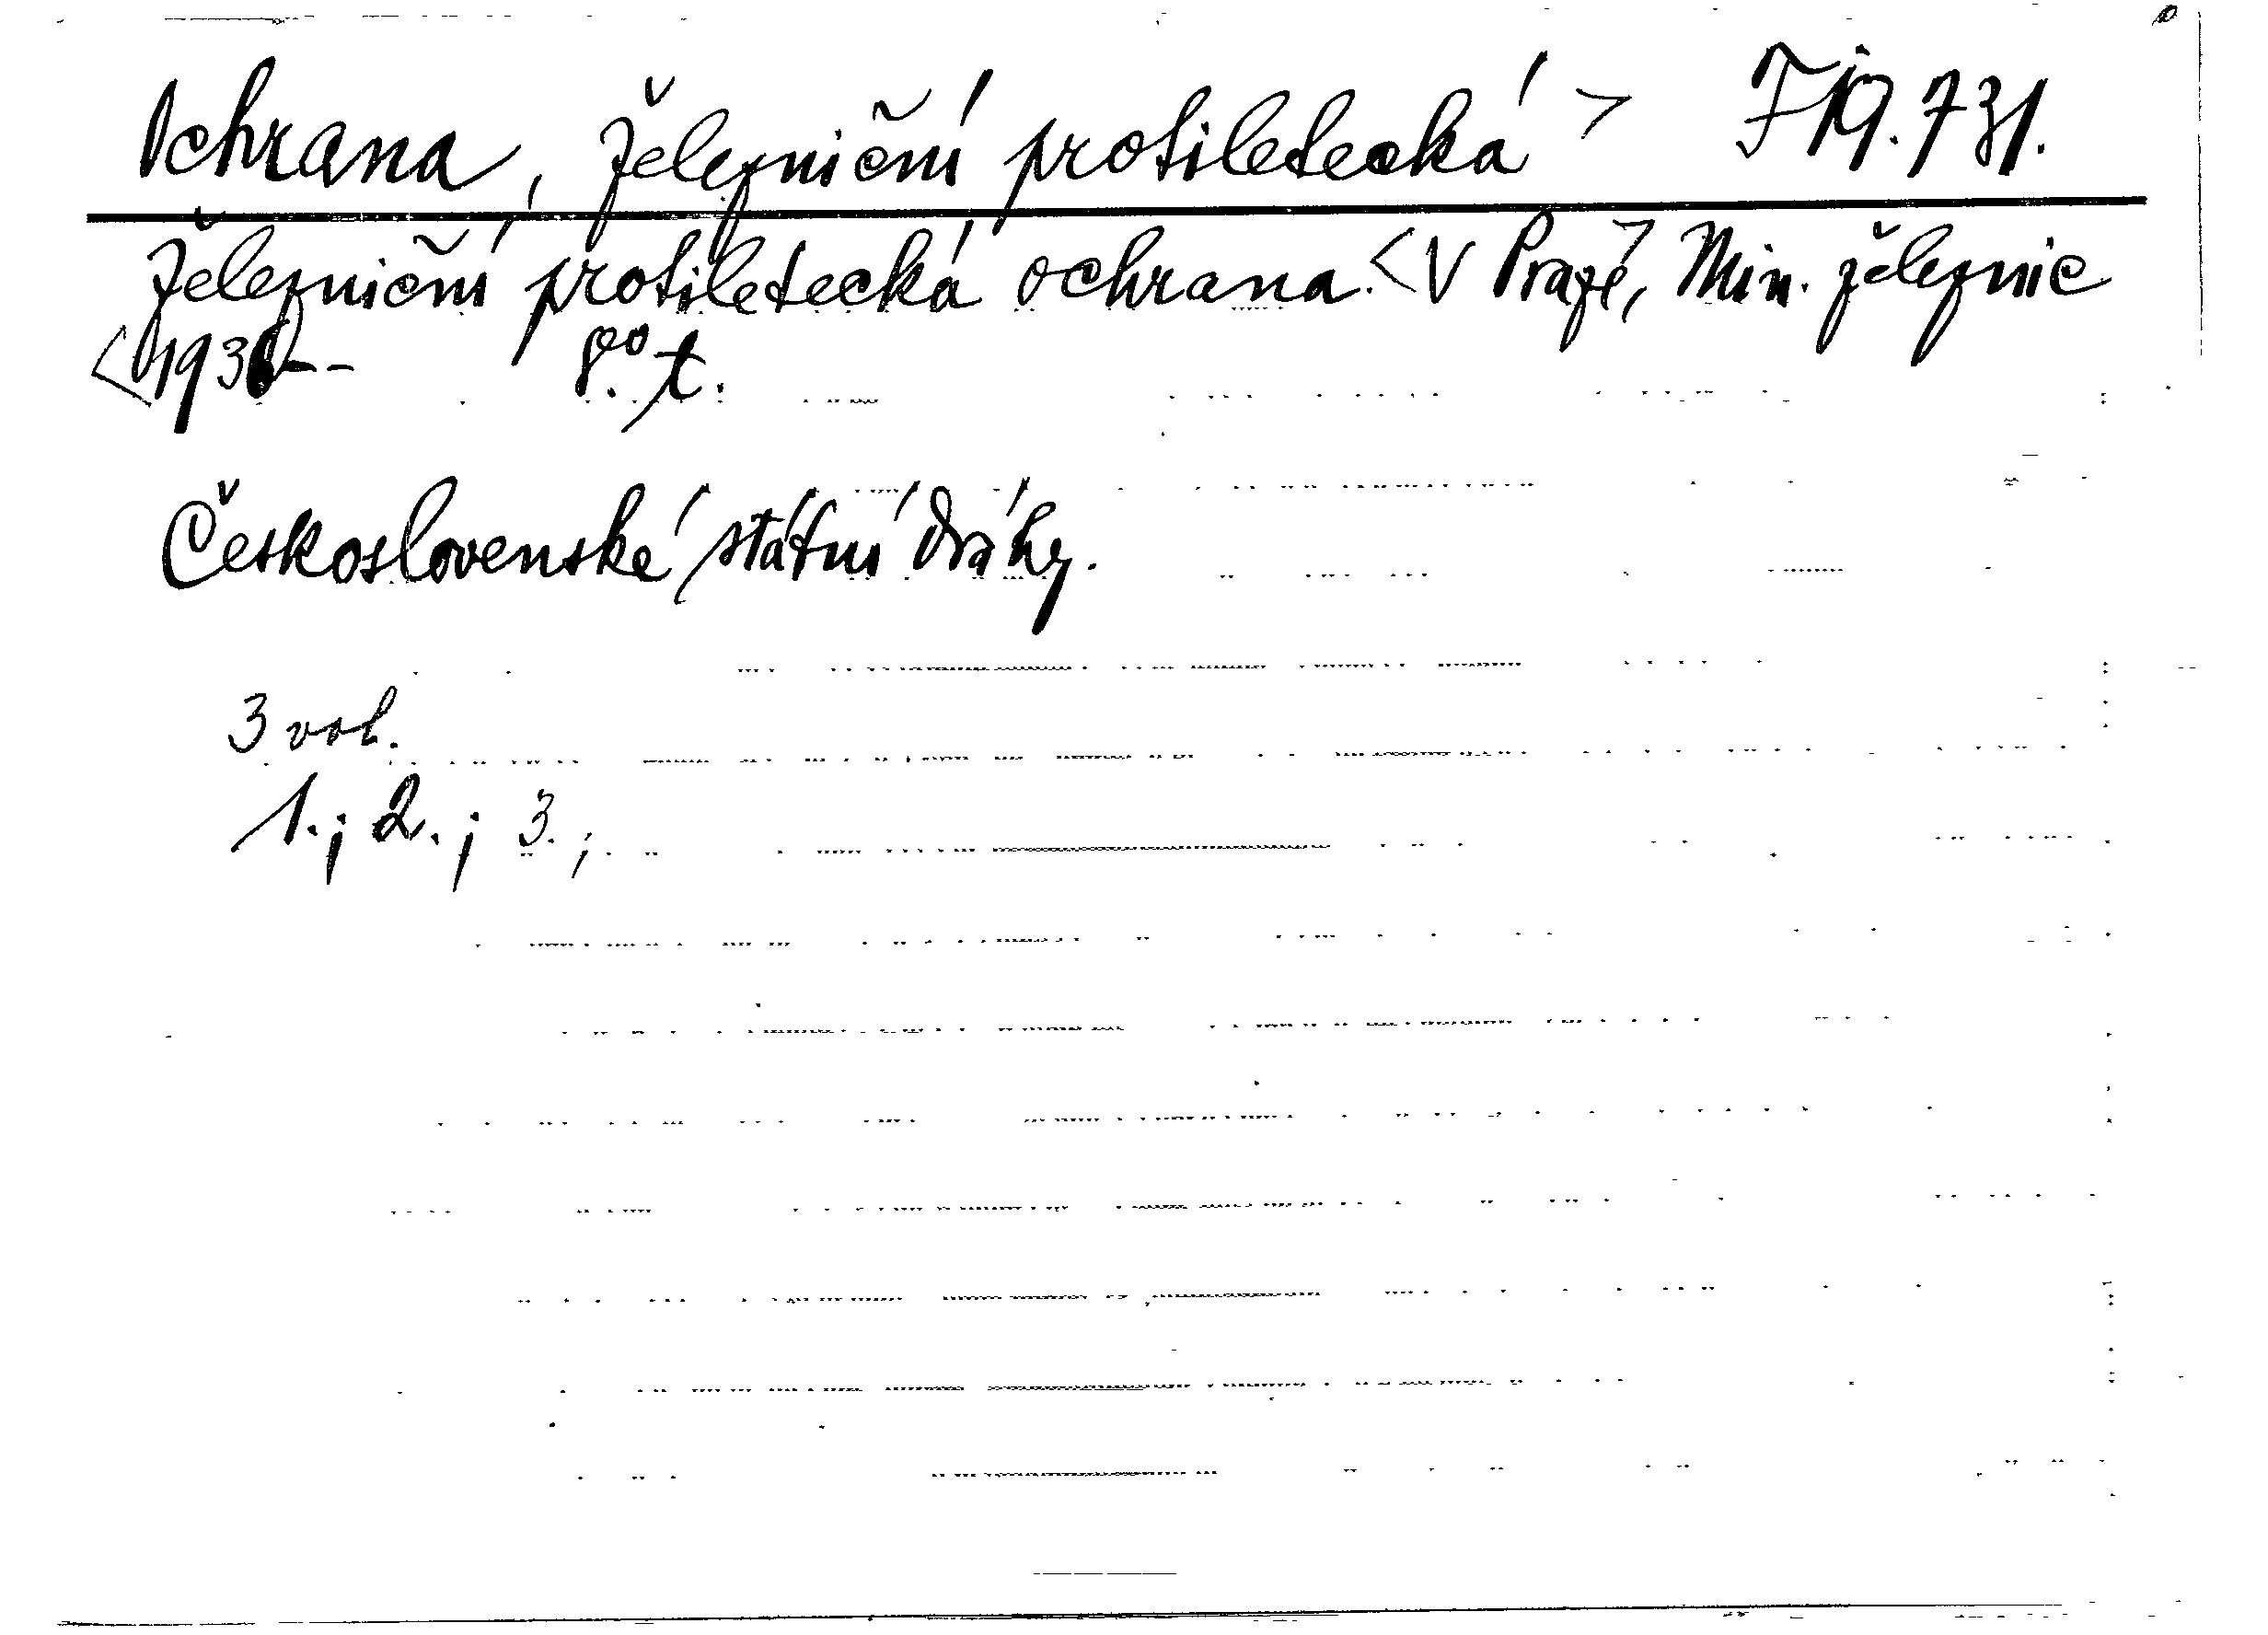 Ochrana, železniční protiletecká > F 19.731.
Železniční protiletecká ochrana. <V Praze>, Min. železnic
<1936-- 8.º t.
Československé státní dráhy.
3 vol.
1.; 2.; 3.;